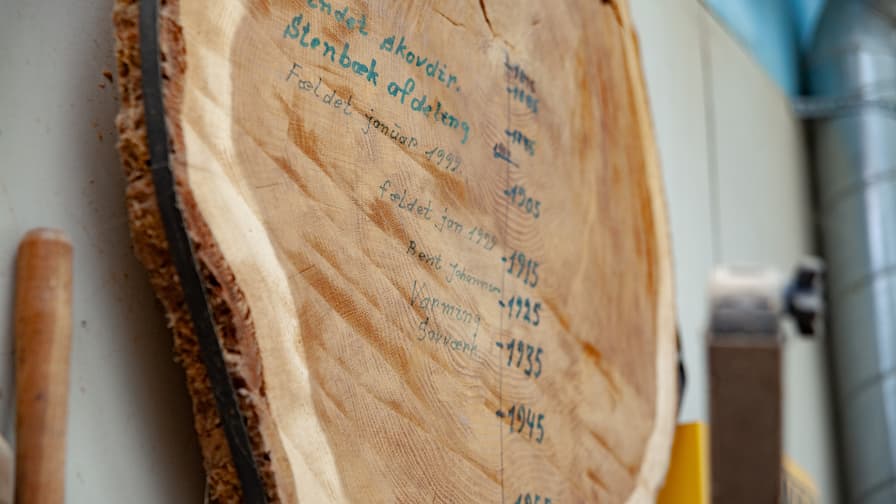 skovdir.
Stenbæk afdeling
Fældet januar 1999
fældet jan 1999
Bent Johannsen
Varming
Savværk
-1905
-1915
-1925
-1935
-1945
1955